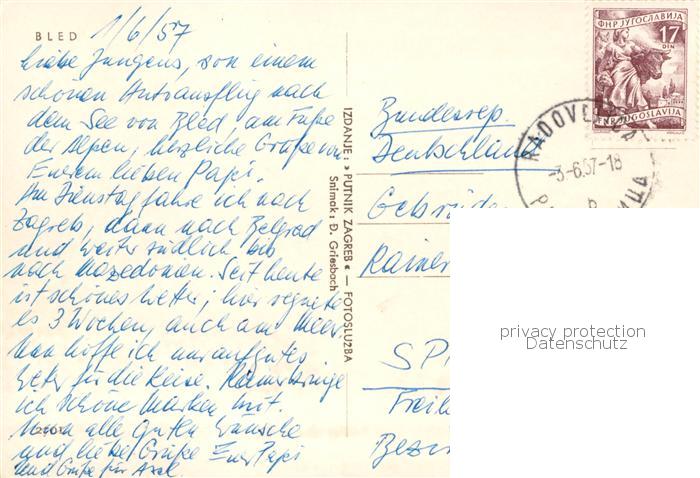 BLED
1/6/57
Liebe Jungens, von einem
schönen Autoausflug nach
dem See von Bled, am Fuße
der Alpen, herzliche Grüße von
Eurem lieben Papi.
Am Dienstag fahre ich nach
Zagreb, dann nach Belgrad
und weiter südlich bis
nach Mazedonien. Seit heute
ist schönes Wetter; hier regnete
es 3 Wochen, auch am Meer.
Nun hoffe ich nur auf gutes
Wetter für die Reise. Rainer bringe
ich schöne Marken mit.
Nun alle guten Wünsche
und liebe Grüße Euer Papi
und Grüße für Axel.
IZDANJE: » PUTNIK ZAGREB « — FOTOSLUŽBA
Snimak: Đ. Griesbach
ФНР ЈУГОСЛАВИЈА
17
DIN
FNR JUGOSLAVIJA
RADOV
-3-6.57-18
Bundesrep.
Deutschland
Gebrüder
Rainer
SP
Frei
privacy protection
Datenschutz